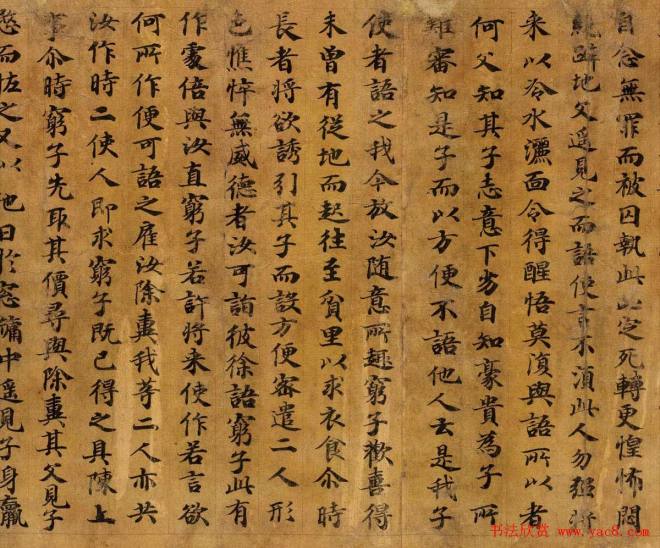 自念無罪而被囚執此必定死轉更惶怖悶
絕躃地父遥見之而語使言不湏此人勿强將
来以冷水灑面令得醒悟莫澓與語所以者
何父知其子志意下劣自知豪貴為子所
難審知是子而以方便不語他人云是我子
使者語之我今放汝随意所趣窮子歡喜得
未曾有従地而起往至貧里以求衣食尒時
長者将欲誘引其子而設方便密遣二人形
色憔悴無威德者汝可詣彼徐語窮子此有
作處倍與汝直窮子若許将来使作若言欲
何所作便可語之雇汝除糞我等二人亦共
汝作時二使人即求窮子既已得之具陳上
事尒時窮子先取其價尋與除糞其父見子
愍而恠之又以他日於窓牖中遥見子身羸
书法欣赏 www.yac8.com